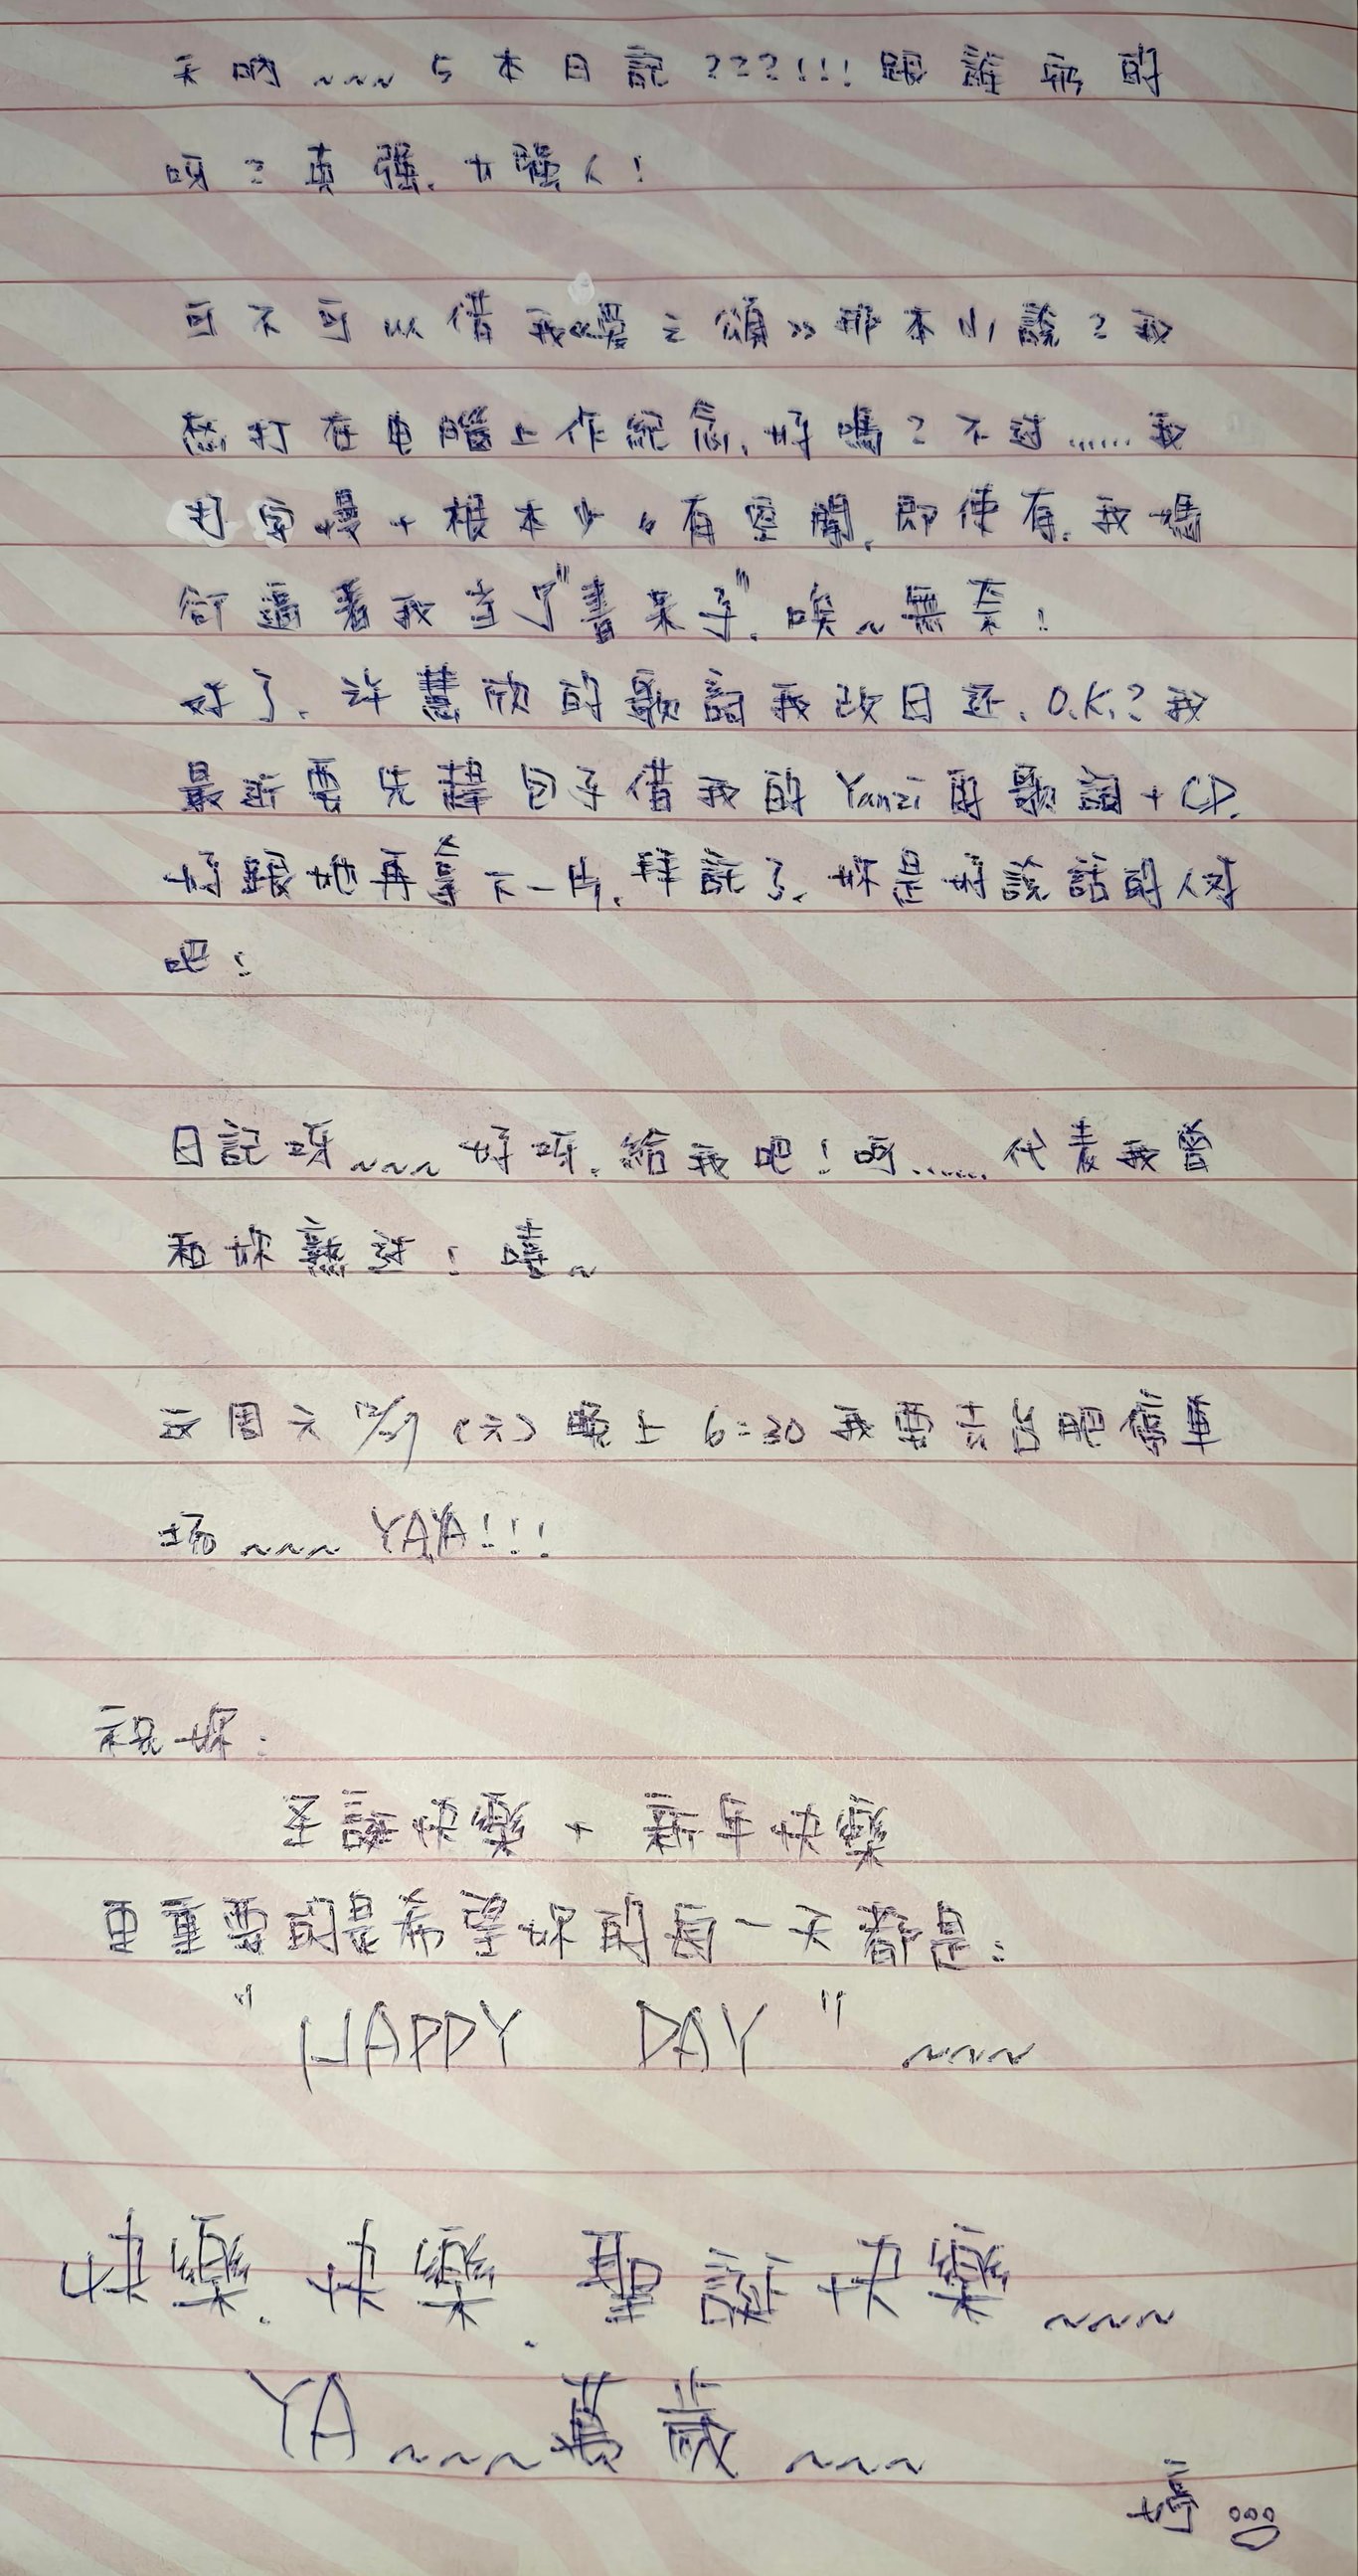 天吶~~~5本日記???!!!跟誰玩的
呀?真強.女強人!
可不可以借我《愛之頌》那本小說?我
想打在电腦上作紀念.好嗎?不过......我
打字慢+根本少少有空閒.即使有.我媽
卻逼著我当了"書呆子".唉~無奈!
好了.许慧欣的歌詞我改日还.O.K.?我
最近要先聽包子借我的Yanzi的歌詞+CD.
好跟她再拿下一片.拜託了.妳是好說話的人对
吧!
日記呀~~~好呀.給我吧!呵......代表我曾
和妳熟过!嘻~
这周六12/27(六)晚上6:30我要去台肥停車
场~~~YAYA!!!
祝妳:
圣誕快樂+新年快樂
更重要的是希望妳的每一天都是:
"HAPPY DAY"~~~
快樂.快樂.聖誕快樂~~~
YA~~~萬歲~~~
婷